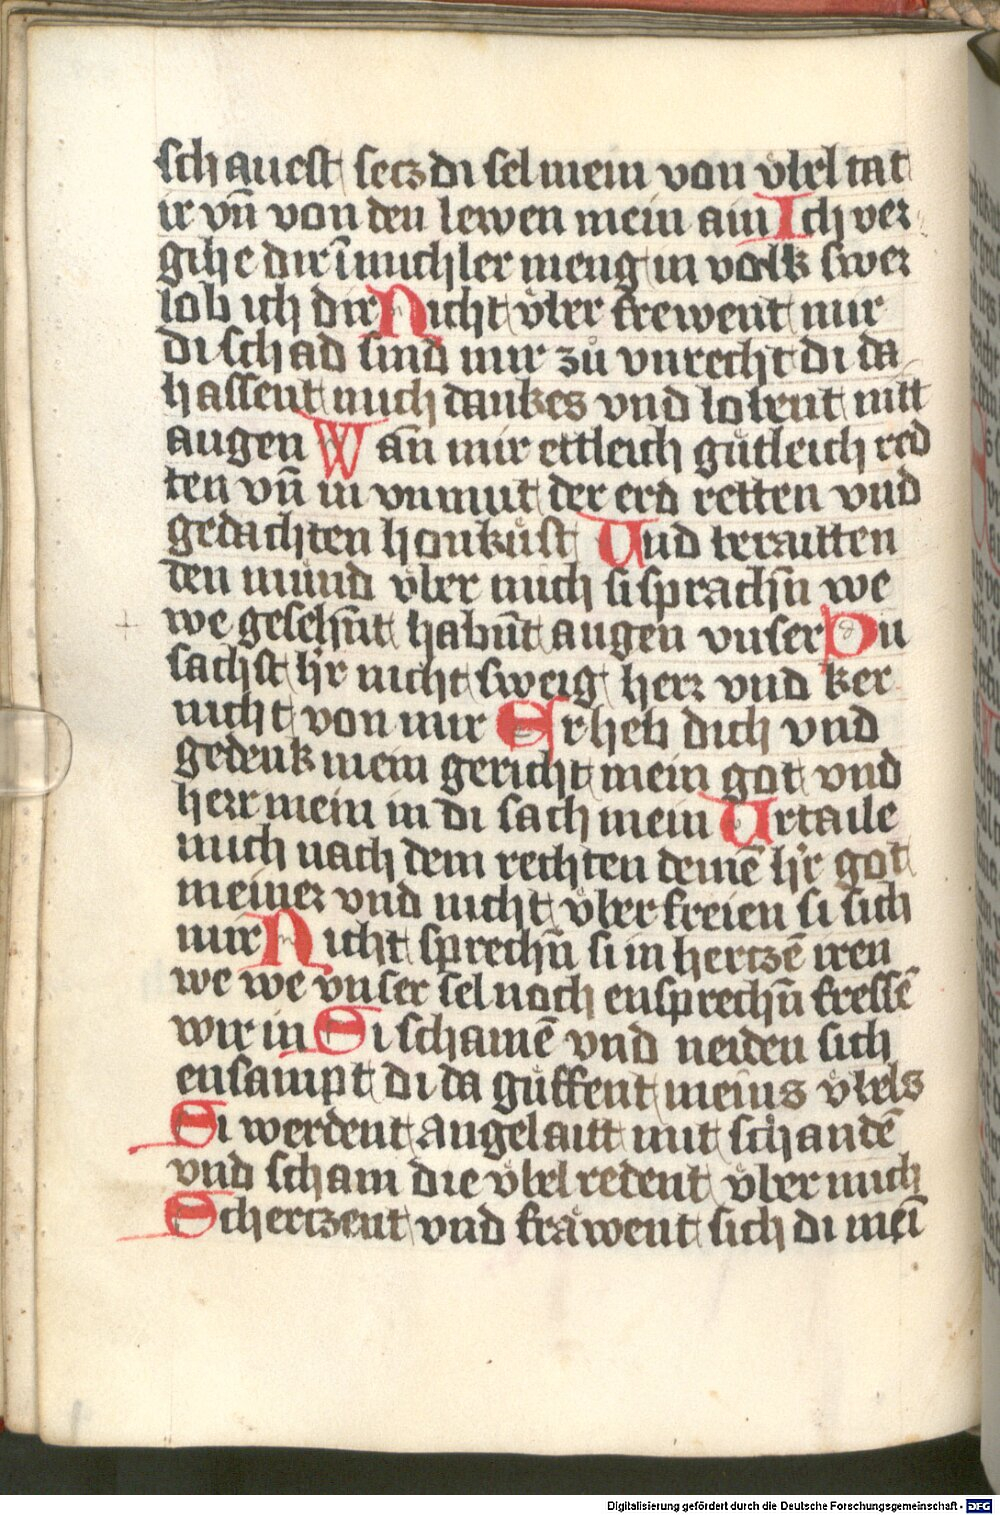 schauest secz di sel mein von vͤbel tat
ir vn̄ von den lewen mein ain Ich ver
gihe dir in michler meng in volk swer
lob ich dir Nicht vͤber frewent mir
di schad sind mir zů vnrecht di da
hassent mich dankes vnd lobent mitt
augen Wan̄ mir ettleich guͤtleich red
ten vn̄ in vnmut der erd retten vnd
gedachten honkuͤst Vnd beraitten
den muͤnd vͤber mich si sprachn̄ we
we gesehn̄t habn̄t augen vnser Du
sachst hr̄ nicht sweig herr vnd ker
nicht von mir Erheb dich vnd
gedenk mein gericht mein got vnd
herr mein in di sach mein Vrtaile
mich nach dem rechten deinē hr̄ got
meiner vnd nicht vͤber freien si sich
mir Nicht sprechn̄ si in hertzē iren
we we vnser sel noch ensprechn̄ fressē
wir in Si schamē vnd neiden sich
ensampt di da guͤffent meins vͤbels
Si werdent angelaitt mit schandē
vnd scham die vͤbel redent vͤber mich
Schertzent vnd fraͤwent sich di mei
Digitalisierung gefördert durch die Deutsche Forschungsgemeinschaft - DFG